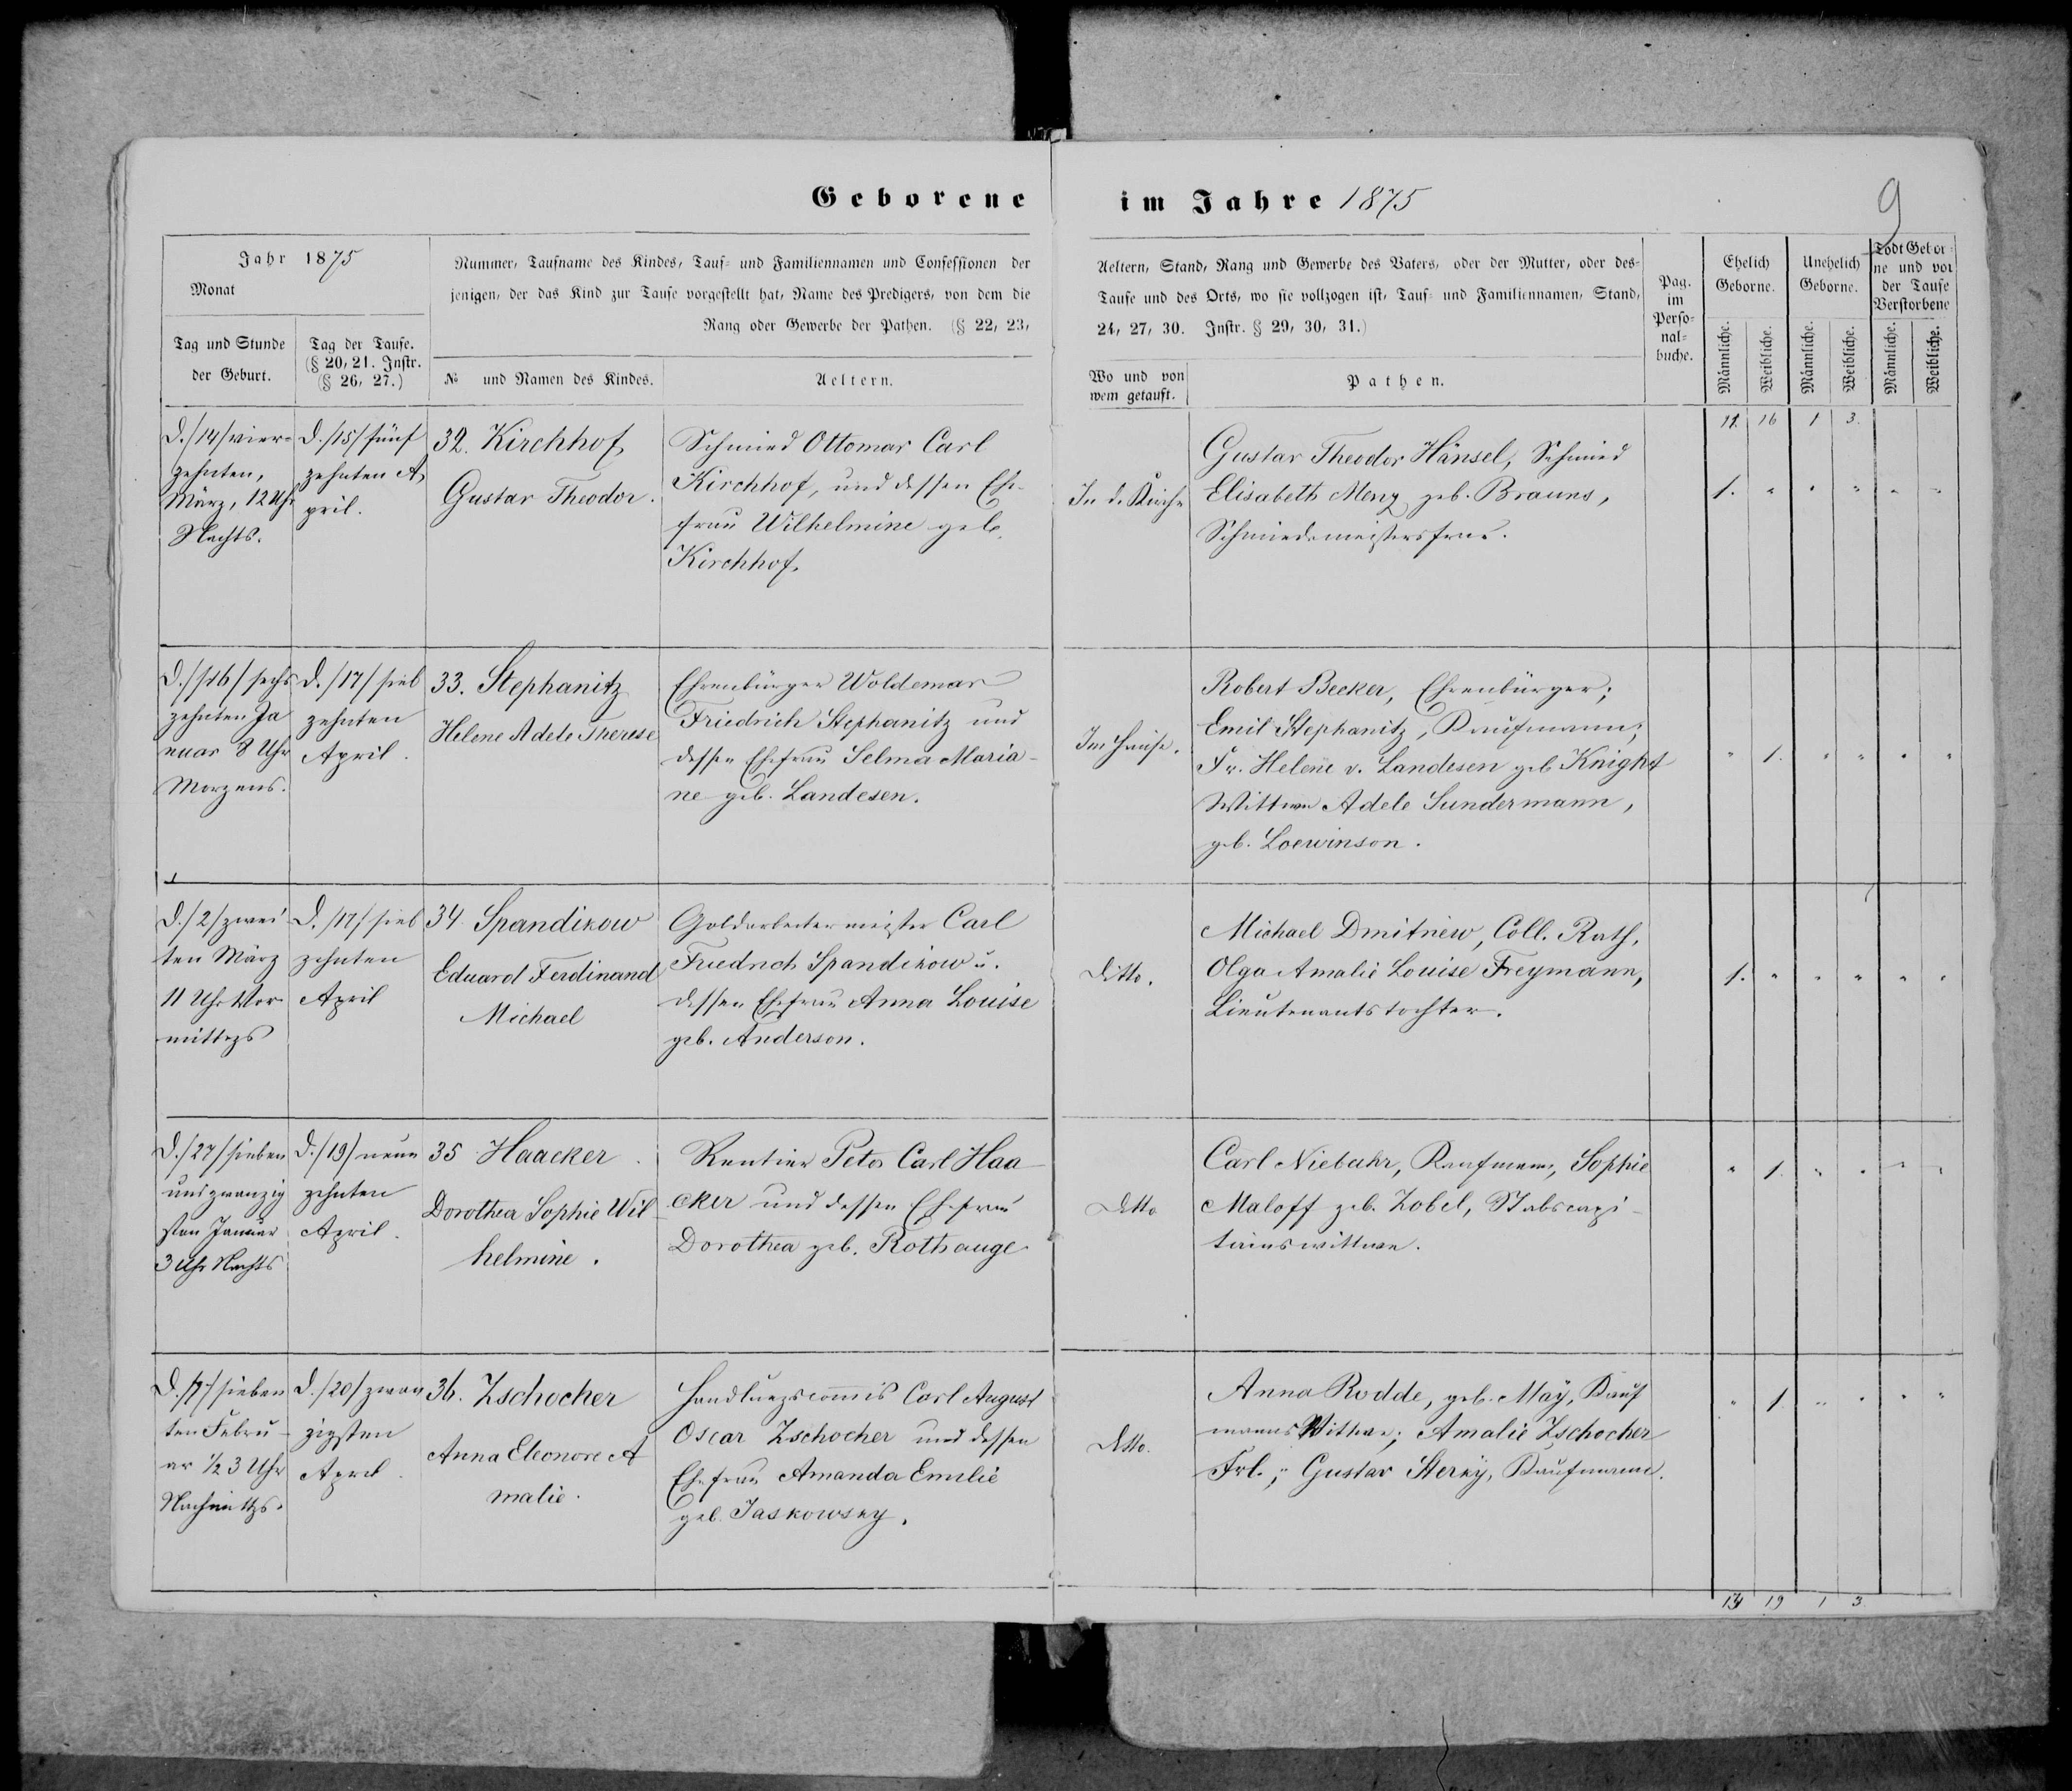 Geborene im Jahre 1875
9
Jahr 1875
Monat
Tag und Stunde
der Geburt.
Tag der Taufe.
(§ 20, 21. Instr.
(§ 26, 27.)
Nummer, Taufname des Kindes, Tauf- und Familiennamen und Confessionen der
jenigen, der das Kind zur Taufe vorgestellt hat, Name des Predigers, von dem die
Rang oder Gewerbe der Pathen. (§ 22, 23,
№ und Namen des Kindes.
Aeltern.
Aeltern, Stand, Rang und Gewerbe des Vaters, oder der Mutter, oder des-
Taufe und des Orts, wo sie vollzogen ist, Tauf- und Familiennamen, Stand,
24, 27, 30. Instr. § 29, 30, 31.)
Wo und von
wem getauft.
Pathen.
Pag.
im
Perso-
nal-
buche.
Ehelich
Geborne.
Unehelich
Geborne.
Todt Gebor-
ne und vor
der Taufe
Verstorbene
Männliche.
Weibliche.
Männliche.
Weibliche.
Männliche.
Weibliche.
16 1 3.
D. /14/ vier-
zehnten,
März, 12 Uhr
Nachts.
D. /15/ fünf
zehnten A
pril.
32. Kirchhof,
Gustav Theodor.
Schmied Ottomar Carl
Kirchhof, und dessen Ehe-
frau Wilhelmine geb.
Kirchhof.
In d. Kirche
Gustav Theodor Hänsel, Schmied
Elisabeth Menz geb. Brauns,
Schmiedemeistersfrau.
1. " " " " "
D. /16/ sechs
zehnten Ja
nuar 8 Uhr
Morgens.
D. /17/ sieb
zehnten
April.
33. Stephanitz
Helene Adele Therese
Ehrenbürger Woldemar
Friedrich Stephanitz und
dessen Ehefrau Selma Maria-
ne geb. Landesen.
Im Hause.
Robert Becker, Ehrenbürger;
Emil Stephanitz, Kaufmann;
Fr. Helene v. Landesen geb. Knight
Wittwe Adele Sundermann,
geb. Loewinson.
" 1. " " " "
D. /2/ zwei
ten März
11 Uhr Vor
mittags
D. /17/ sieb
zehnten
April
34. Spandikow
Eduard Ferdinand
Michael
Goldarbeitermeister Carl
Friedrich Spandikow u.
dessen Ehefrau Anna Louise
geb. Anderson.
Ditto.
Michael Dmitriew, Coll. Rath,
Olga Amalie Louise Freymann,
Lieutenantstochter.
1. " " " " "
D. /27/ sieben
undzwanzig
sten Januar
3 Uhr Nachts
D. /19/ neun
zehnten
April.
35 Haacker
Dorothea Sophie Wil
helmine.
Rentier Peter Carl Haa
cker und dessen Ehefrau
Dorothea geb. Rothauge
Ditto
Carl Niebuhr, Kaufmann, Sophie
Maloff geb. Zobel, Stabscapi-
tainswittwe.
" 1. " " " "
D. /7/ sieben
ten Febru-
ar ½ 3 Uhr
Nachmittgs.
D. /20/ zwan
zigsten
April.
36. Zschocher
Anna Eleonore A
malie.
Handlungscommis Carl August
Oscar Zschocher und dessen
Ehefrau Amanda Emilie
geb. Jaskowsky.
Ditto.
Anna Rodde, geb. Maÿ, Kauf
manns Wittwe; Amalie Zschocher
Frl.; Gustav Sterky, Kaufmann.
" 1. " " " "
19 1 3